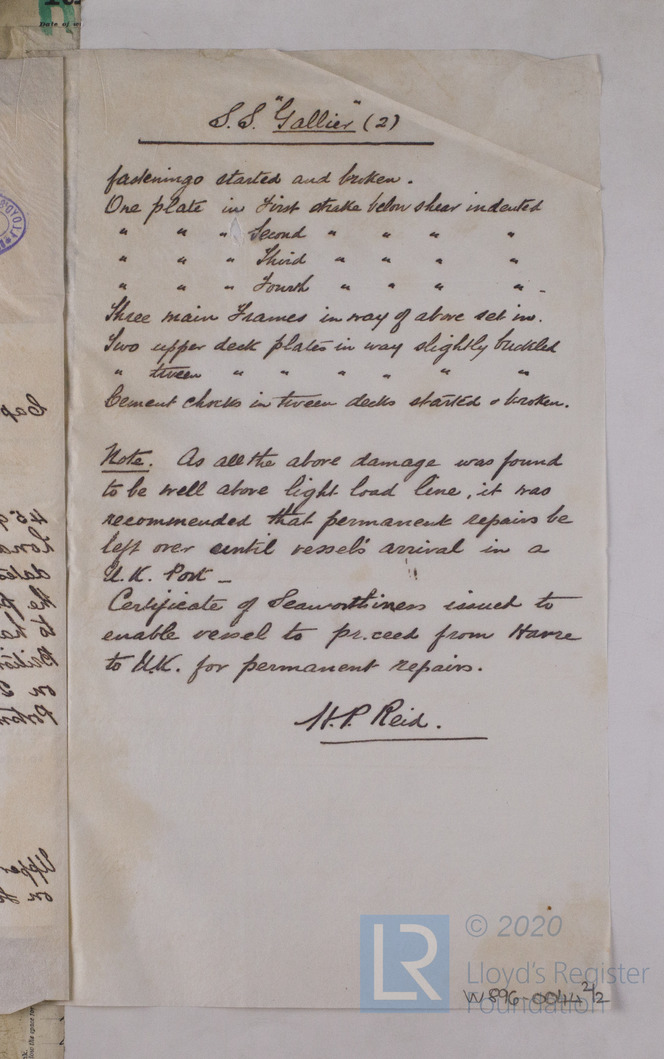 S.S. "Gallier" (2)
fastenings started and broken.
One plate in First strake below shear indented
" " " Second " " " "
" " " Third " " " "
" " " Fourth " " " " -
Three main Frames in way of above set in.
Two upper deck plates in way slightly buckled
" tween " " " " " "
Cement chocks in tween decks started & broken.
Note. As all the above damage was found
to be well above light load line, it was
recommended that permanent repairs be
left over until vessel's arrival in a
U.K. Port -
Certificate of Seaworthiness issued to
enable vessel to pr.ceed from Havre
to U.K. for permanent repairs.
H.P. Reid.
LR
© 2020
Lloyd's Register
Foundation
W896-0044 2/2